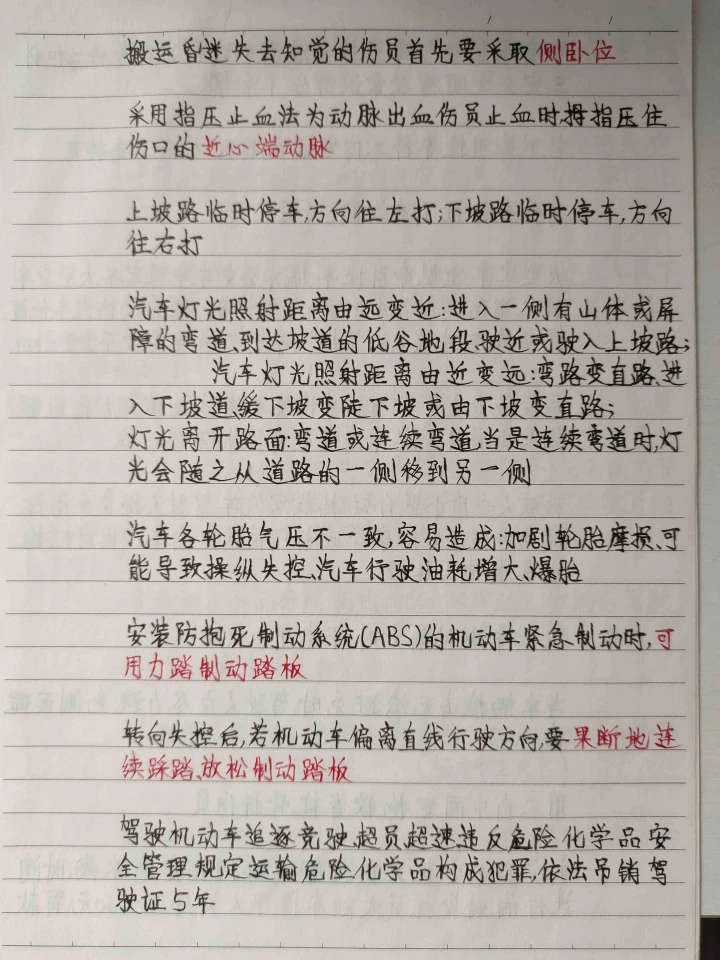 搬运昏迷失去知觉的伤员首先要采取侧卧位
采用指压止血法为动脉出血伤员止血时,拇指压住
伤口的近心端动脉
上坡路临时停车,方向往左打;下坡路临时停车,方向
往右打
汽车灯光照射距离由远变近:进入一侧有山体或屏
障的弯道、到达坡道的低谷地段、驶近或驶入上坡路;
汽车灯光照射距离由近变远:弯路变直路、进
入下坡道、缓下坡变陡下坡或由下坡变直路;
灯光离开路面:弯道或连续弯道,当是连续弯道时,灯
光会随之从道路的一侧移到另一侧
汽车各轮胎气压不一致,容易造成:加剧轮胎摩损、可
能导致操纵失控、汽车行驶油耗增大、爆胎
安装防抱死制动系统(ABS)的机动车紧急制动时,可
用力踏制动踏板
转向失控后,若机动车偏离直线行驶方向,要果断地连
续踩踏、放松制动踏板
驾驶机动车追逐竞驶、超员超速违反危险化学品安
全管理规定运输危险化学品构成犯罪,依法吊销驾
驶证5年